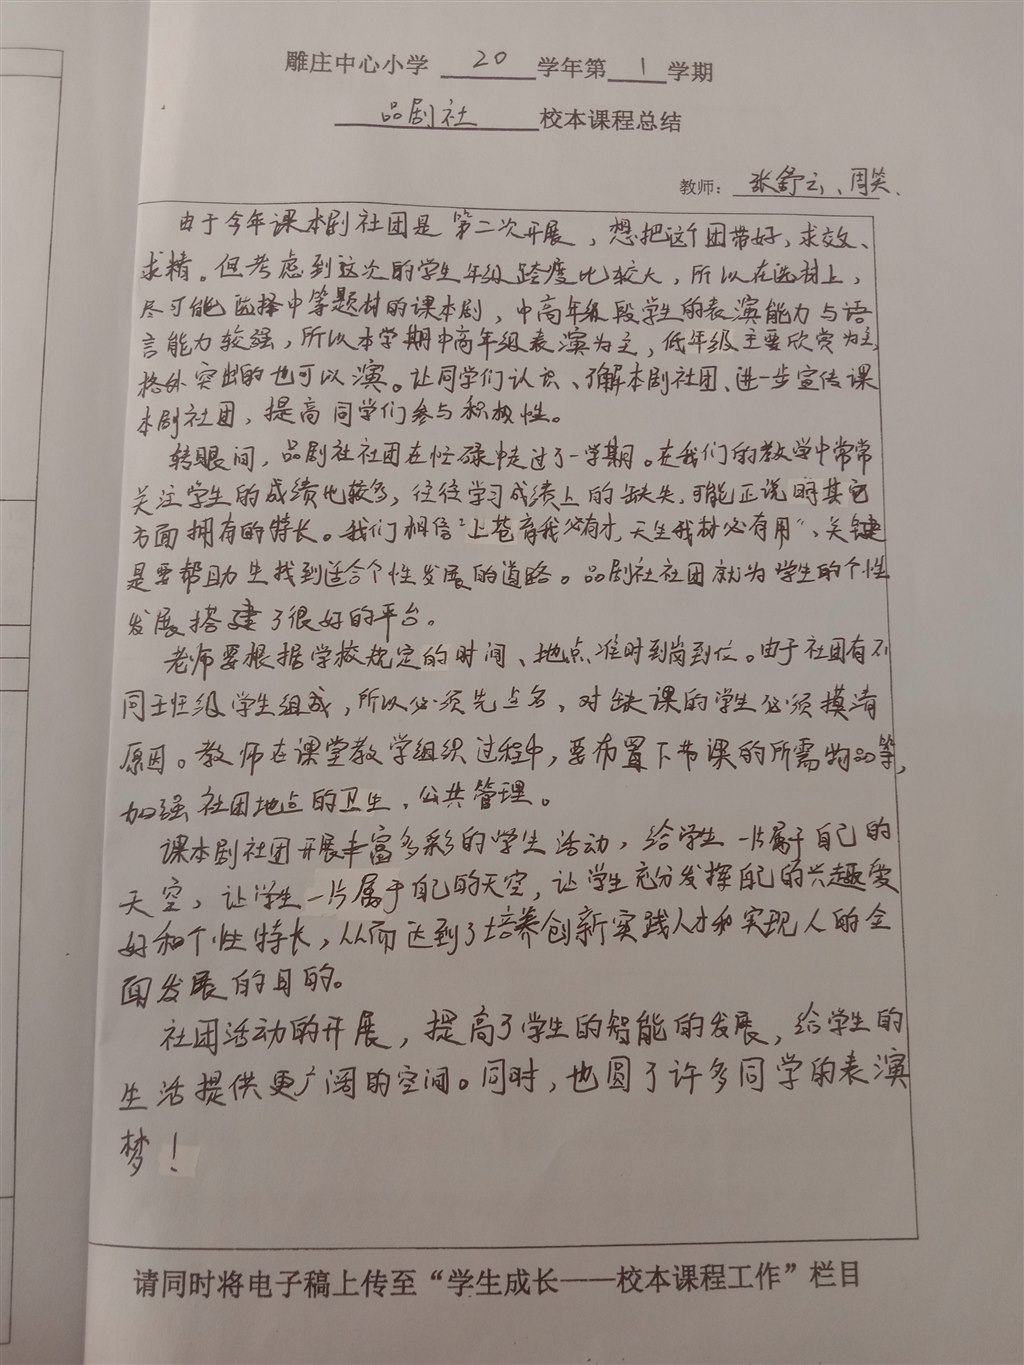 雕庄中心小学 20 学年第 1 学期
品剧社 校本课程总结
教师：张舒云、周笑、
由于今年课本剧社团是第二次开展，想把这个团带好，求效、
求精。但考虑到这次的学生年级跨度比较大，所以在选材上，
尽可能选择中等题材的课本剧，中高年级段学生的表演能力与语
言能力较强，所以本学期中高年级表演为主，低年级主要欣赏为主，
格外突出的也可以演。让同学们认识、了解本剧社团、进一步宣传课
本剧社团，提高同学们参与积极性。
转眼间，品剧社社团在忙碌中走过了一学期。在我们的教学中常常
关注学生的成绩比较多，往往学习成绩上的缺失，可能正说明其它
方面拥有的特长。我们相信“上苍有我必有才，天生我材必有用”、关键
是要帮助生找到适合个性发展的道路。品剧社社团就为学生的个性
发展搭建了很好的平台。
老师要根据学校规定的时间、地点准时到岗到位。由于社团有不
同班级学生组成，所以必须先点名，对缺课的学生必须摸清
原因。教师在课堂教学组织过程中，要布置下节课的所需物品等，
加强社团地点的卫生，公共管理。
课本剧社团开展丰富多彩的学生活动，给学生一片属于自己的
天空，让学生一片属于自己的天空，让学生充分发挥自己的兴趣爱
好和个性特长，从而达到了培养创新实践人才和实现人的全
面发展的目的。
社团活动的开展，提高了学生的智能的发展，给学生的
生活提供更广阔的空间。同时，也圆了许多同学的表演
梦！
请同时将电子稿上传至“学生成长——校本课程工作”栏目